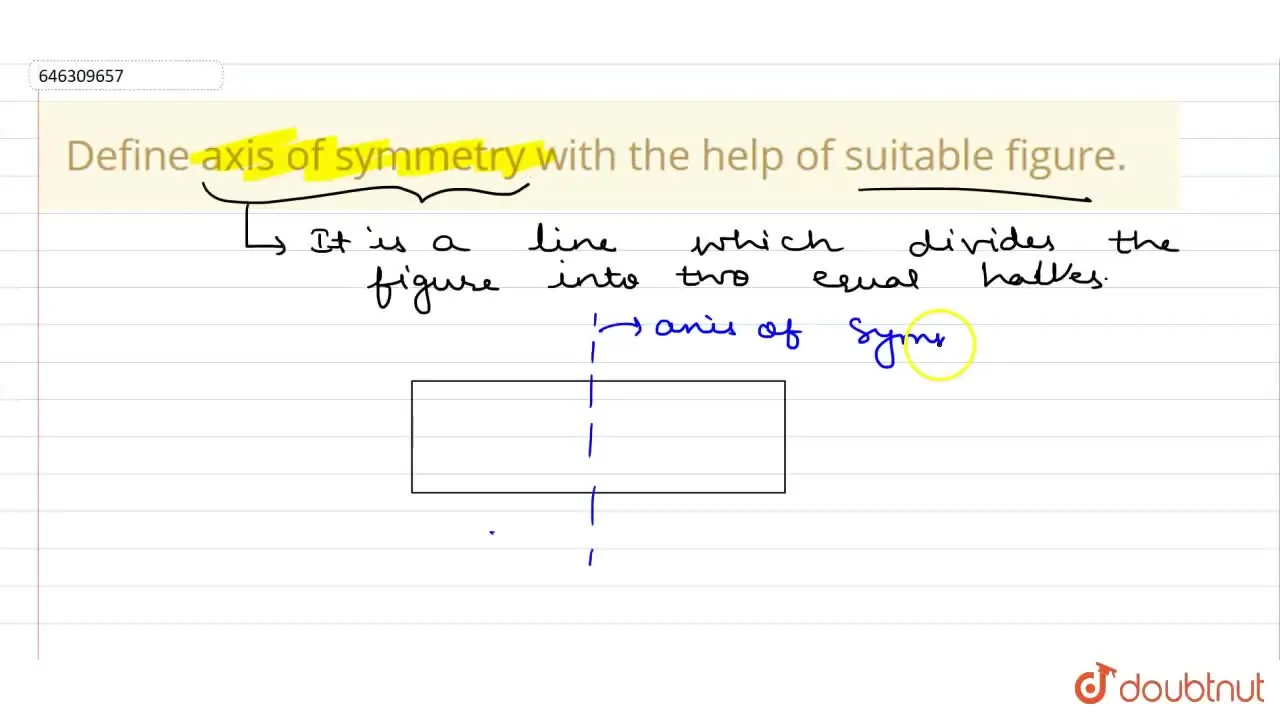 646309657
Define axis of symmetry with the help of suitable figure.
It is a line which divides the
figure into two equal halves.
axis of Symm
doubtnut